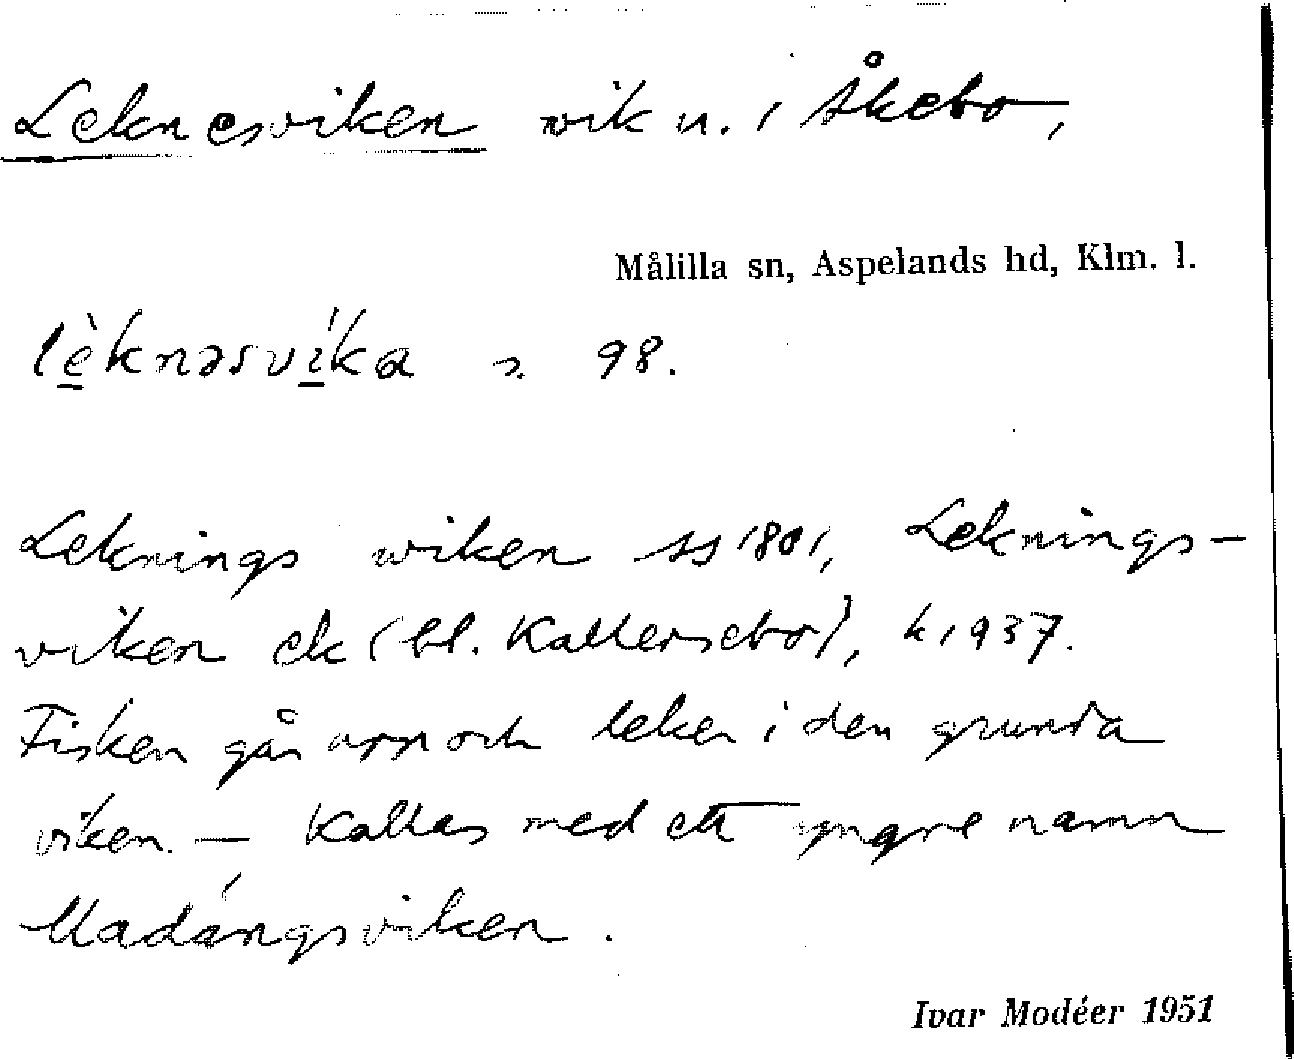 Leknesviken vik n. i Åkebo,
Målilla sn, Aspelands hd, Klm. l.
lèknəsvíka 98.
Leknings wiken ss 1801, Leknings-
viken ek (bl. Kallersebo), k 1937.
Fisken går upp och leker i den grunda
viken. — Kallas med ett yngre namn
Madängsviken.
Ivar Modéer 1951